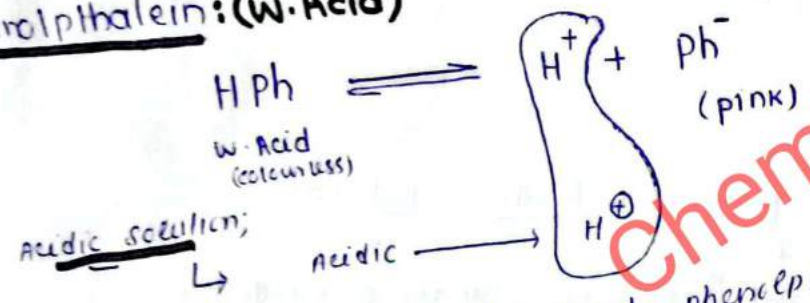 nolpthalein: (W. Acid)
HPh ⇌ H⁺ + Ph⁻
W. Acid (pink)
(colourless)
Acidic solution;
↳ Acidic → H⊕
Chem
phenolp